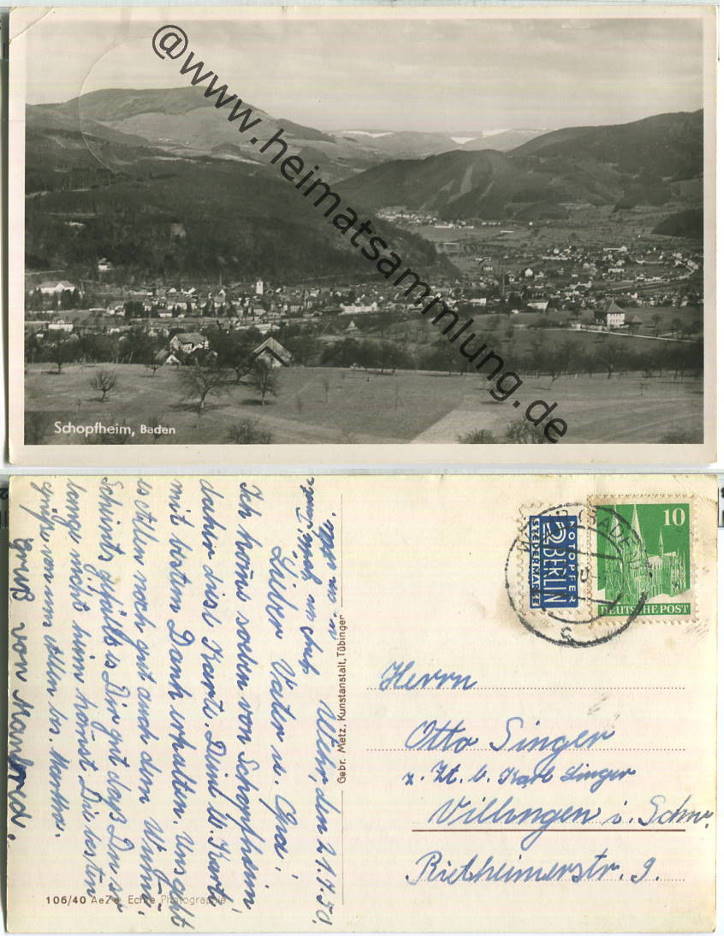 @www.heimatsammlung.de
Schopfheim, Baden
10
DEUTSCHE POST
NOTOPFER
2 BERLIN
STEUERMARKE
Herrn
Otto Singer
z. Zt. b. Karl Singer
Villingen i. Schw.
Rietheimerstr. 9.
Gebr. Metz, Kunstanstalt, Tübingen
106/40 Echte Photographie
Wehr, den 21.4.50.
Lieber Vater u. Opa!
Ich komme soeben von Schopfheim
daher diese Karte. Deine lb. Karte
mit bestem Dank erhalten. Uns geht
es Allen noch gut auch dem
Scheints gefällt es Dir gut dass Du so
lange nicht heim kommst. Die besten
Grüße von uns Allen bes. Martha.
Gruß von